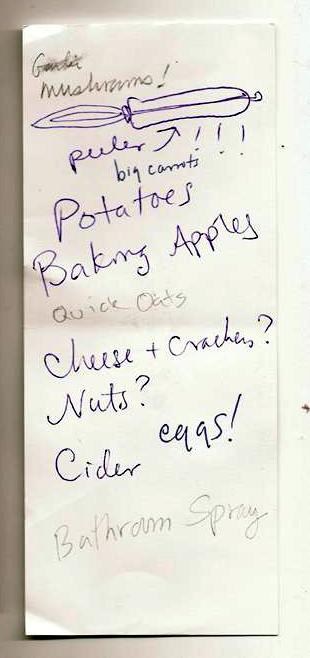 mushrooms!
peeler ↗ ! ! !
big carrots
Potatoes
Baking Apples
Quick Oats
Cheese + Crackers?
Nuts?
eggs!
Cider
Bathroom Spray